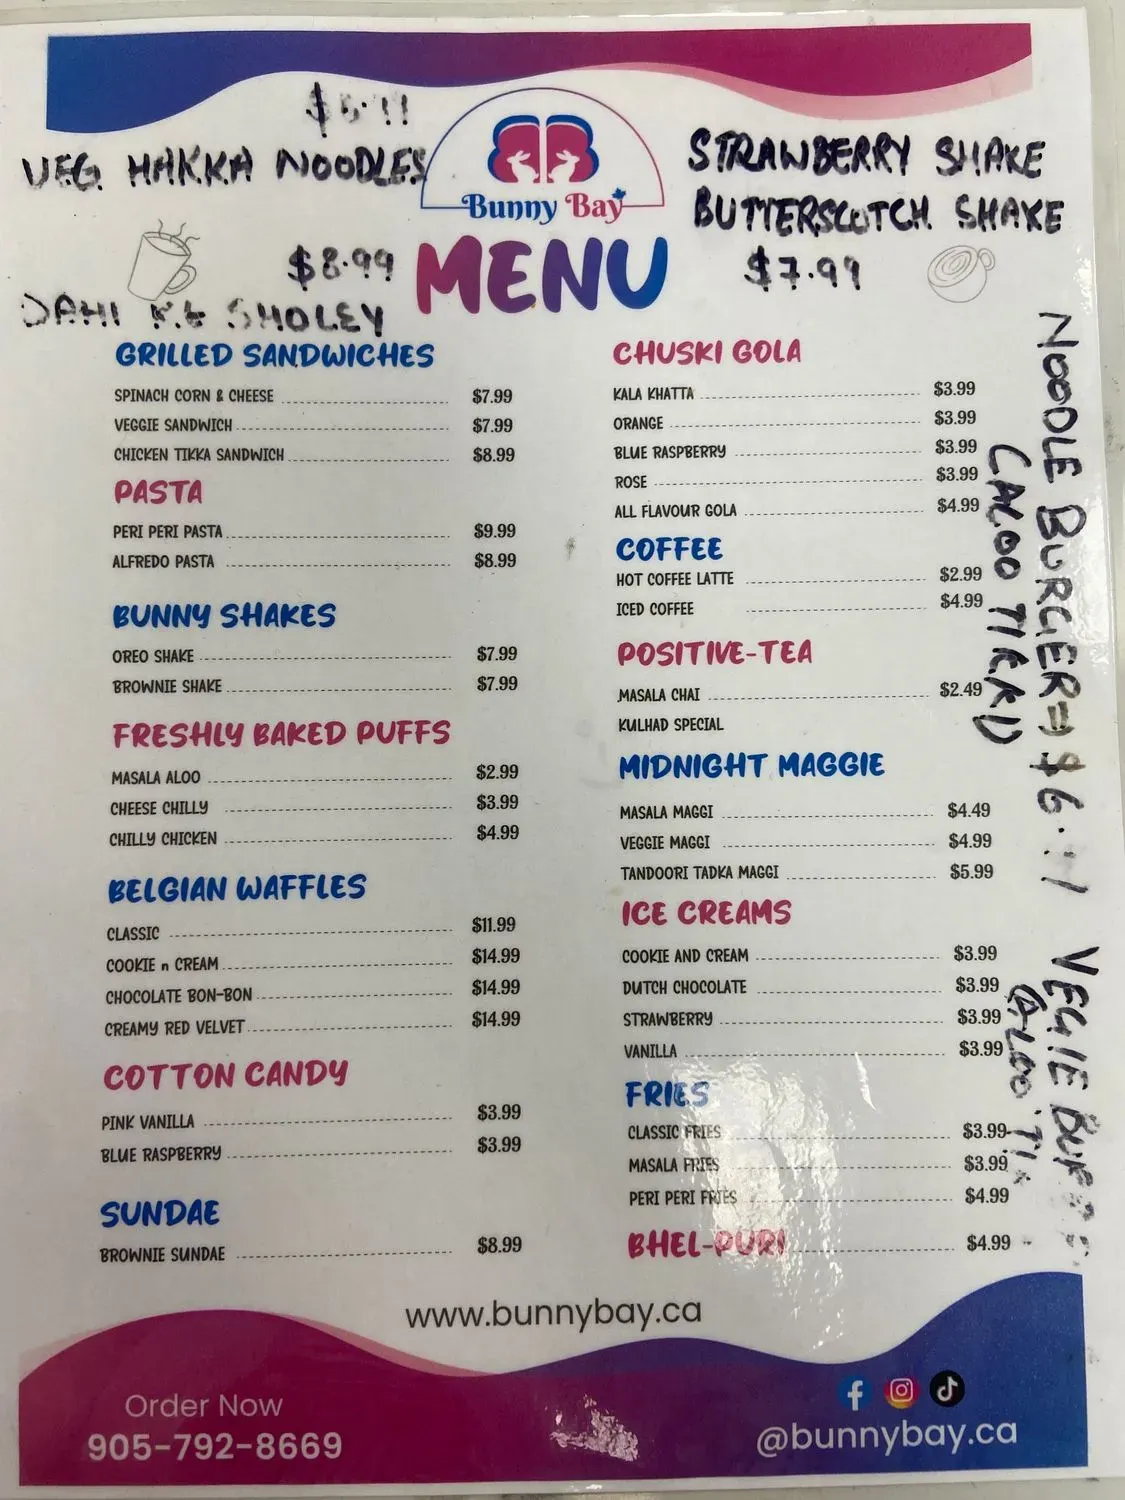 VEG HAKKA NOODLES
$8.99
SHOLEY
Bunny Bay
MENU
STRAWBERRY SHAKE
BUTTERSCOTCH SHAKE
$7.99
GRILLED SANDWICHES
SPINACH CORN & CHEESE $7.99
VEGGIE SANDWICH $7.99
CHICKEN TIKKA SANDWICH $8.99
PASTA
PERI PERI PASTA $9.99
ALFREDO PASTA $8.99
BUNNY SHAKES
OREO SHAKE $7.99
BROWNIE SHAKE $7.99
FRESHLY BAKED PUFFS
MASALA ALOO $2.99
CHEESE CHILLY $3.99
CHILLY CHICKEN $4.99
BELGIAN WAFFLES
CLASSIC $11.99
COOKIE n CREAM $14.99
CHOCOLATE BON-BON $14.99
CREAMY RED VELVET $14.99
COTTON CANDY
PINK VANILLA $3.99
BLUE RASPBERRY $3.99
SUNDAE
BROWNIE SUNDAE $8.99
CHUSKI GOLA
KALA KHATTA $3.99
ORANGE $3.99
BLUE RASPBERRY $3.99
ROSE $3.99
ALL FLAVOUR GOLA $4.99
COFFEE
HOT COFFEE LATTE $2.99
ICED COFFEE $4.99
POSITIVE-TEA
MASALA CHAI $2.49
KULHAD SPECIAL
MIDNIGHT MAGGIE
MASALA MAGGI $4.49
VEGGIE MAGGI $4.99
TANDOORI TADKA MAGGI $5.99
ICE CREAMS
COOKIE AND CREAM $3.99
DUTCH CHOCOLATE $3.99
STRAWBERRY $3.99
VANILLA $3.99
FRIES
CLASSIC FRIES $3.99
MASALA FRIES $3.99
PERI PERI FRIES $4.99
BHEL-PURI $4.99
NOODLE BURGER
VEGIE
www.bunnybay.ca
Order Now
905-792-8669
@bunnybay.ca